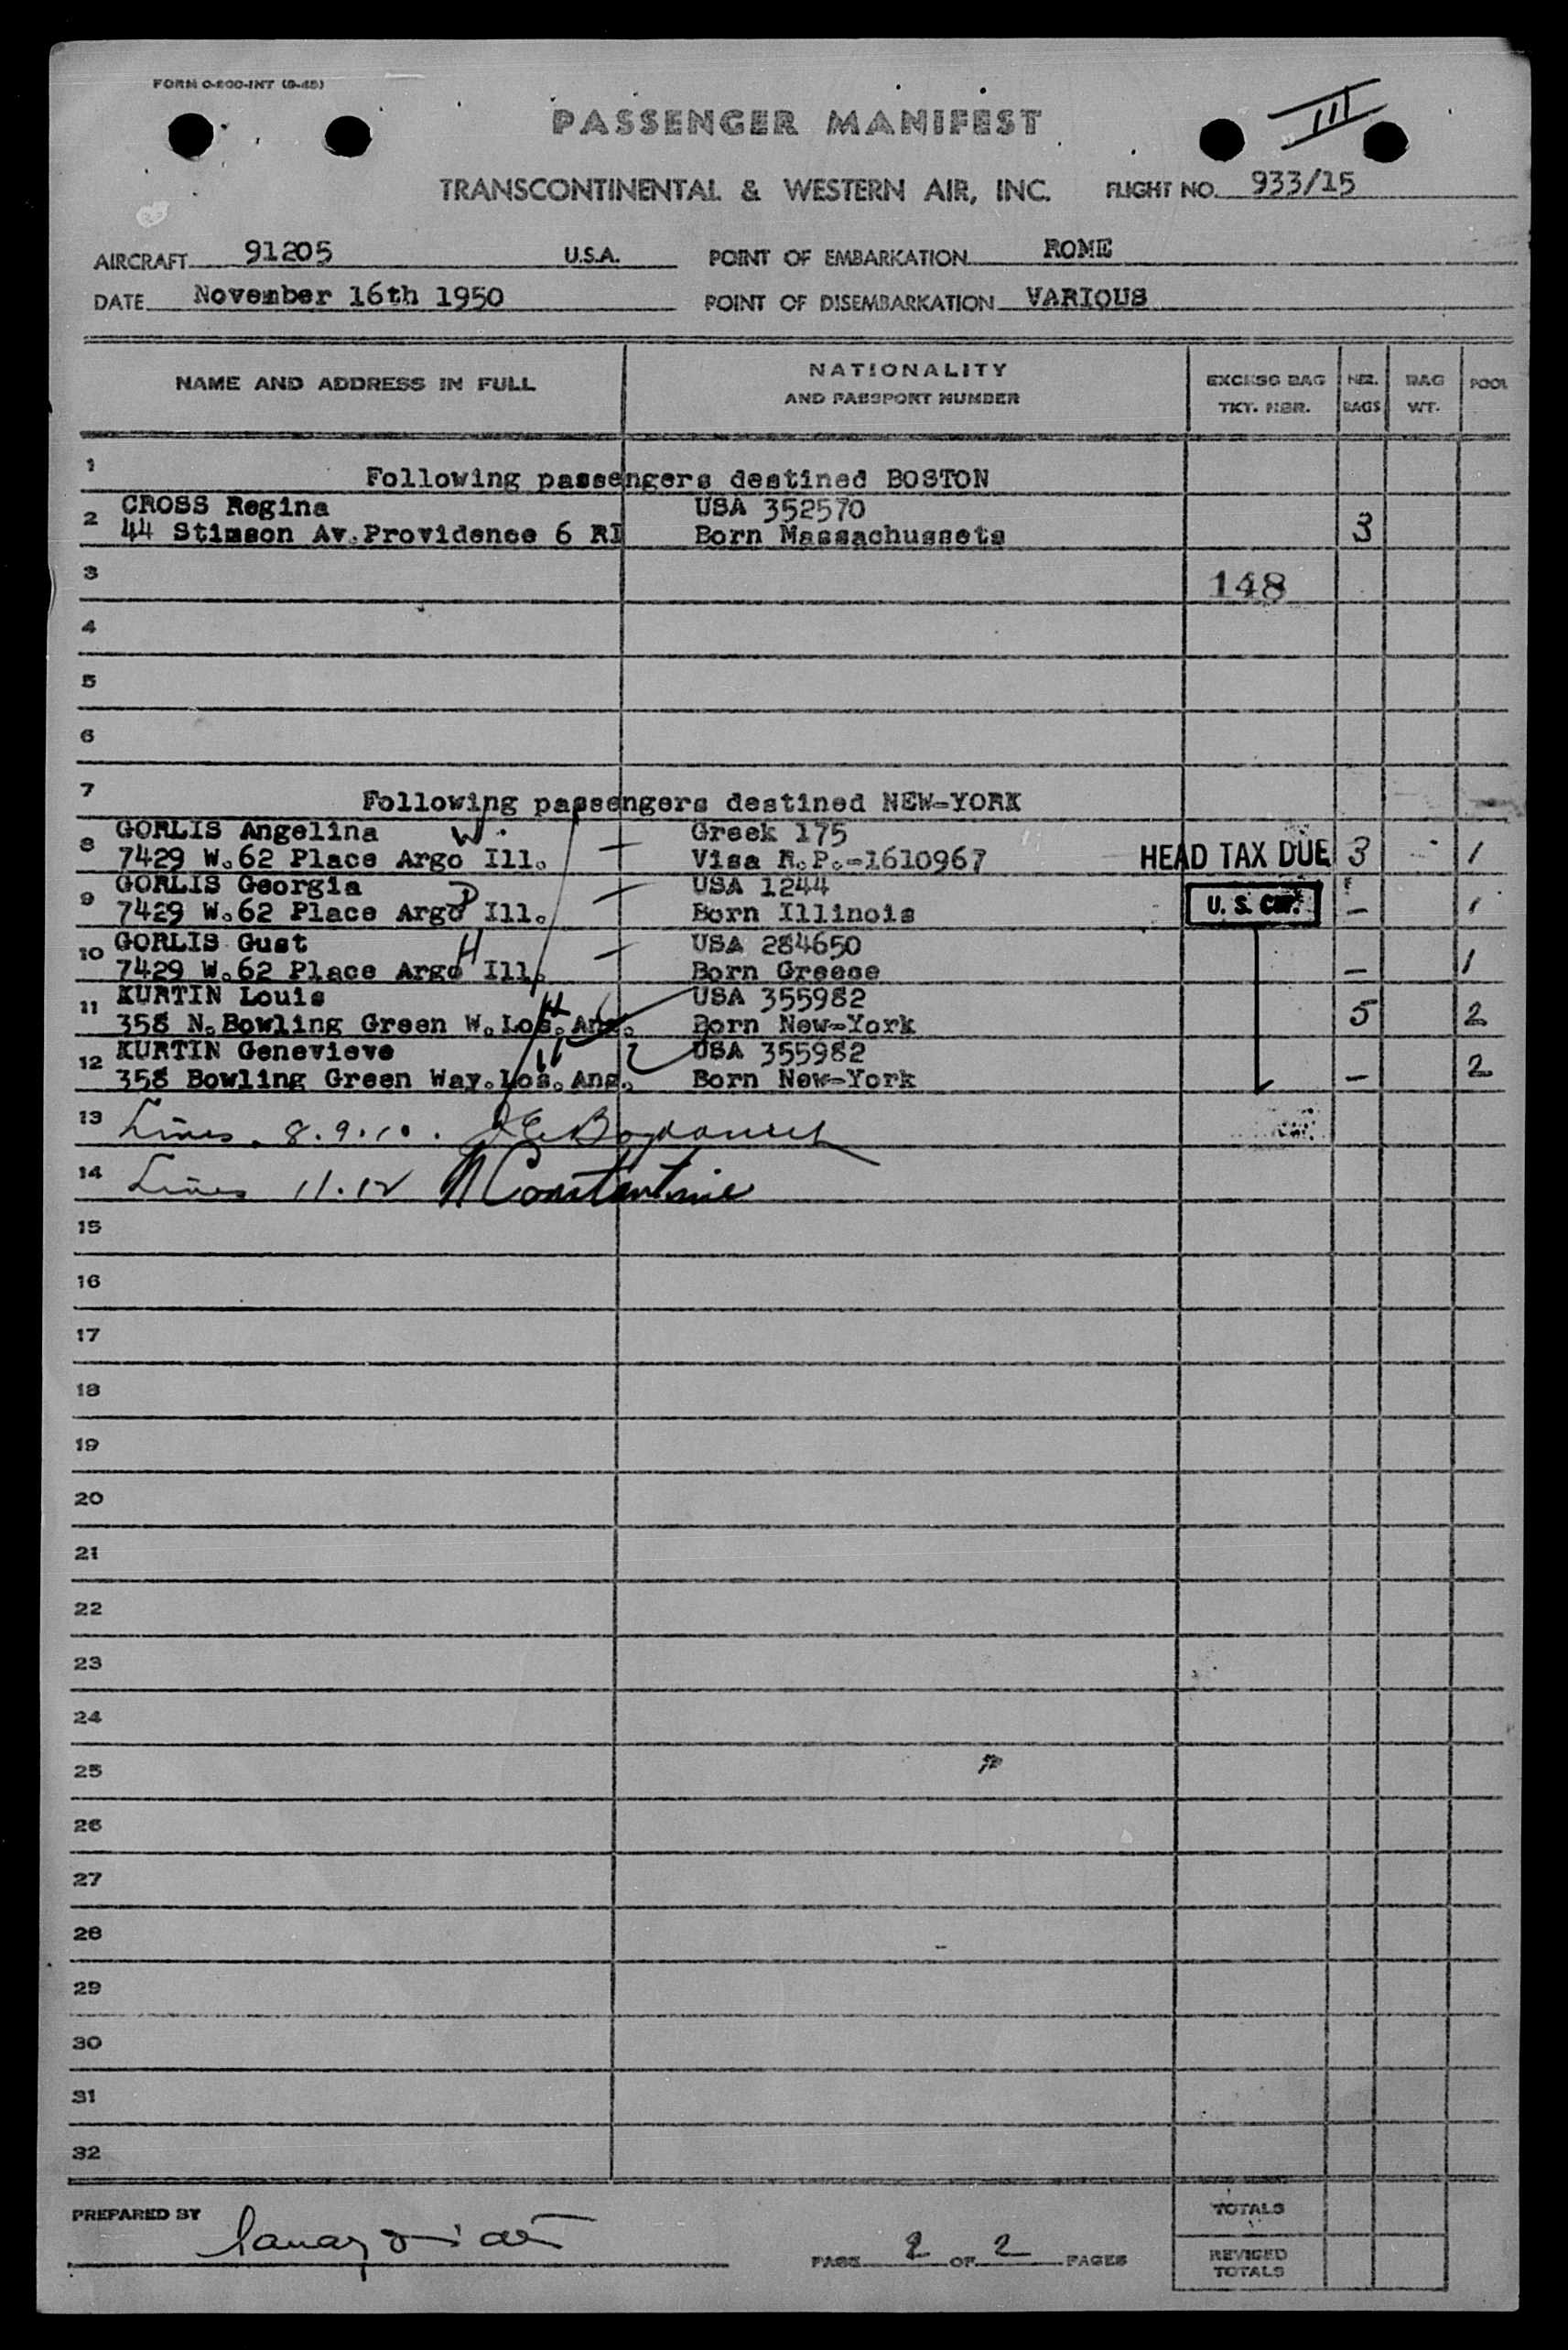 FORM O-200-INT (9-48)
III
PASSENGER MANIFEST
TRANSCONTINENTAL & WESTERN AIR, INC. FLIGHT NO. 933/15
AIRCRAFT 91205 U.S.A. POINT OF EMBARKATION ROME
DATE November 16th 1950 POINT OF DISEMBARKATION VARIOUS
NAME AND ADDRESS IN FULL NATIONALITY AND PASSPORT NUMBER EXCESS BAG TKT. NBR. NBR. BAGS BAG WT. POOL
1 Following passengers destined BOSTON
CROSS Regina USA 352570
2 44 Stimson Av.Providence 6 RI Born Massachussets 3
3 148
4
5
6
7 Following passengers destined NEW-YORK
GORLIS Angelina W. Greek 175
8 7429 W.62 Place Argo Ill. Visa N.P.-1610967 HEAD TAX DUE 3 1
GORLIS Georgia D USA 1244
9 7429 W.62 Place Argo Ill. Born Illinois U. S. CIT. - 1
GORLIS Gust H USA 284650
10 7429 W.62 Place Argo Ill. Born Greece - 1
KURTIN Louis H USA 355982
11 358 N.Bowling Green W.Los.Ang. Born New-York 5 2
KURTIN Genevieve W USA 355982
12 358 Bowling Green Way.Los.Ang. Born New-York - 2
13 Lines 8.9.10.
14 Lines 11.12 N Constantine
15
16
17
18
19
20
21
22
23
24
25
26
27
28
29
30
31
32
PREPARED BY
PAGE 2 OF 2 PAGES
TOTALS
REVISED TOTALS